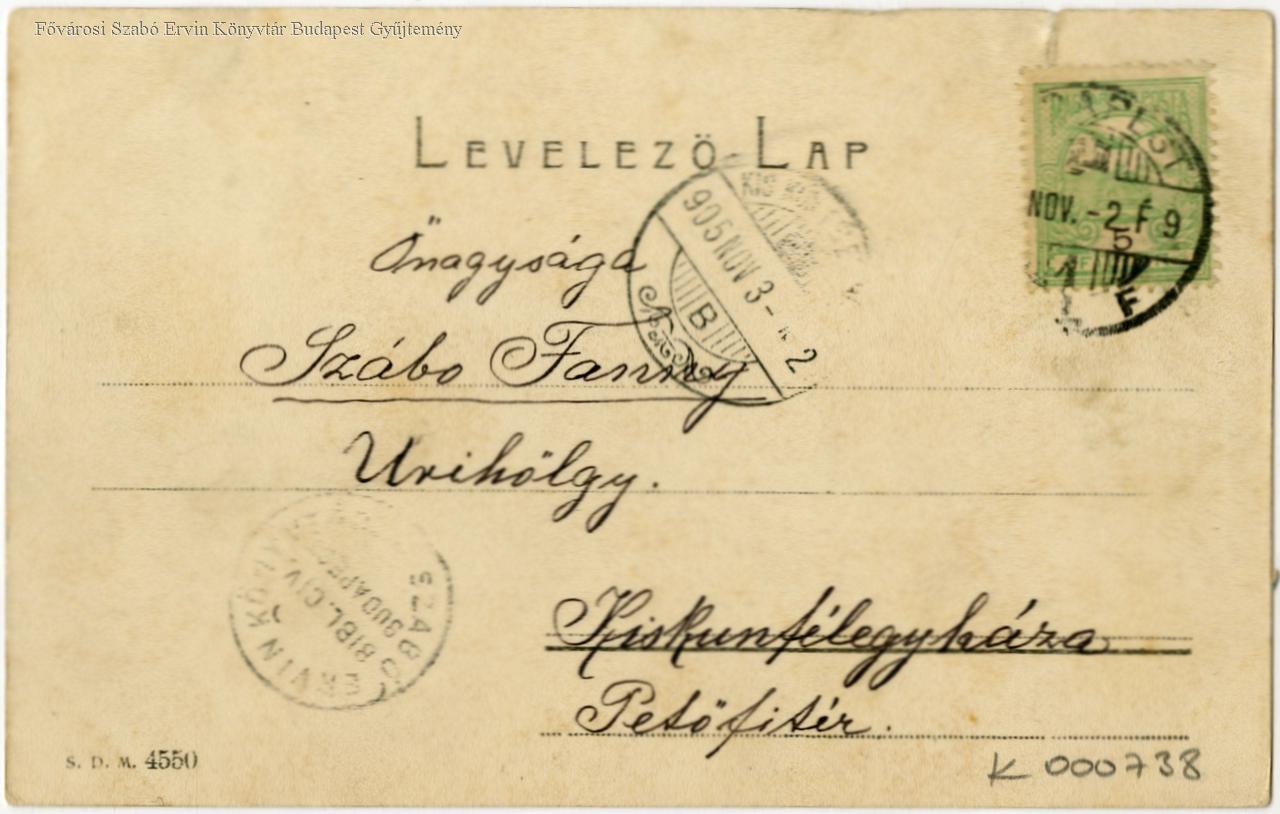 Fővárosi Szabó Ervin Könyvtár Budapest Gyűjtemény
LEVELEZŐ LAP
NOV. - 2 F 9
5
F
905 NOV 3 -
2
B
Őnagysága
Szábo Fanny
Urihölgy.
SZABÓ ERVIN
BIBL. CIV.
Kiskunfélegyháza
Petőfitér.
S. D. M. 4550
K 000738